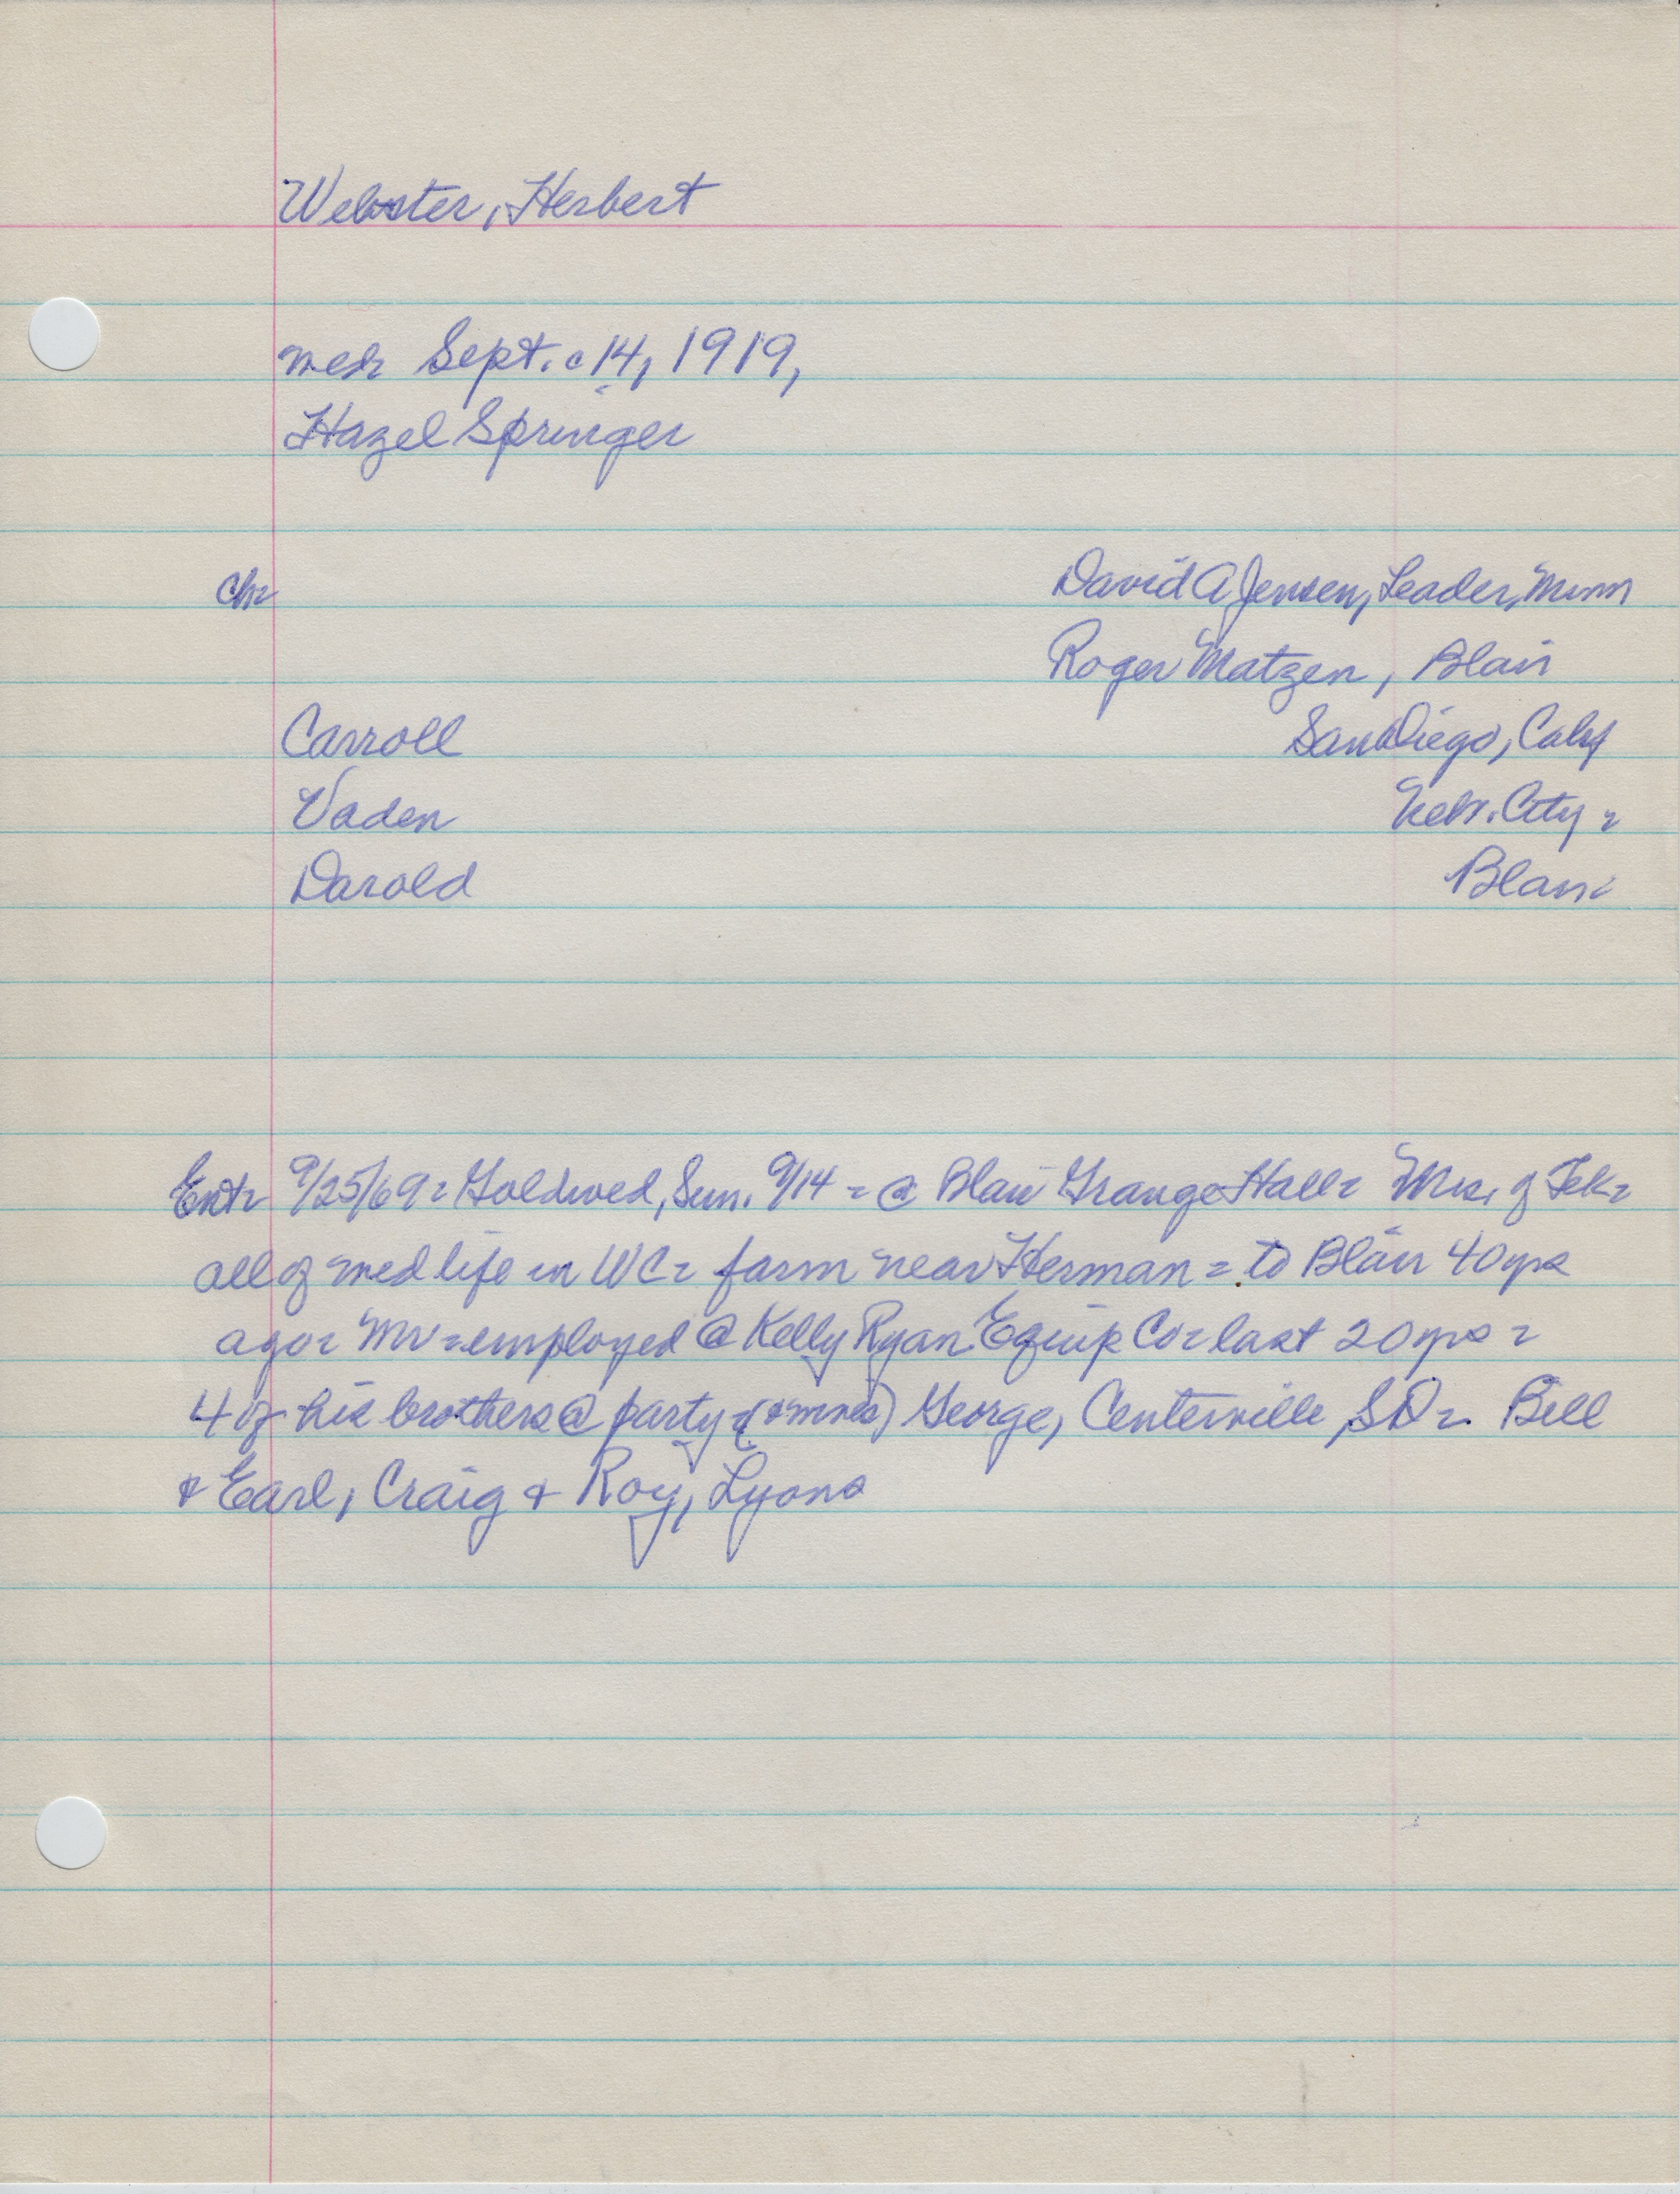 Webster, Herbert
med= Sept. 14, 1919,
Hazel Springer
Ch= David A Jensen, Leader, Minn
Roger Matzen, Blair
Carroll San Diego, Calif
Vaden Neb. City =
Darold Blair
Ent= 9/25/69 = Goldwed, Sun. 9/14 = @ Blair Grange Hall = Mrs. of Tek =
all of med life in WC = farm near Herman = to Blair 40 yrs
ago = Mr = employed @ Kelly Ryan Equip Co = last 20 yrs =
4 of his brothers @ party = George, Centerville, SD =. Bill
& Earl, Craig & Roy, Lyons